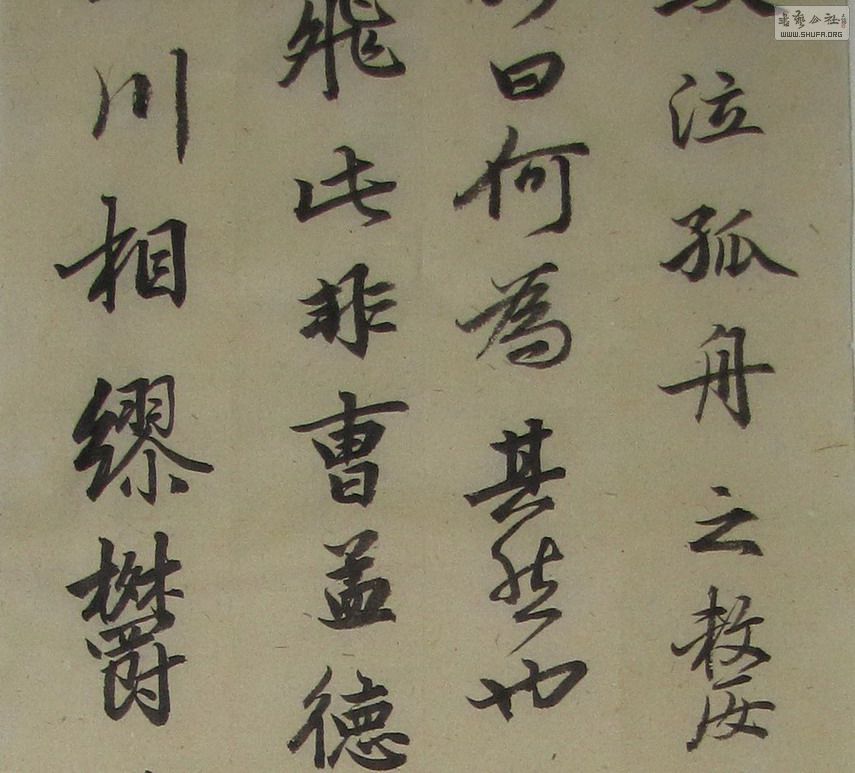 泣孤舟之嫠
曰何為其然也
飛此非曹孟德
川相繆鬱
書藝公社
WWW.SHUFA.ORG